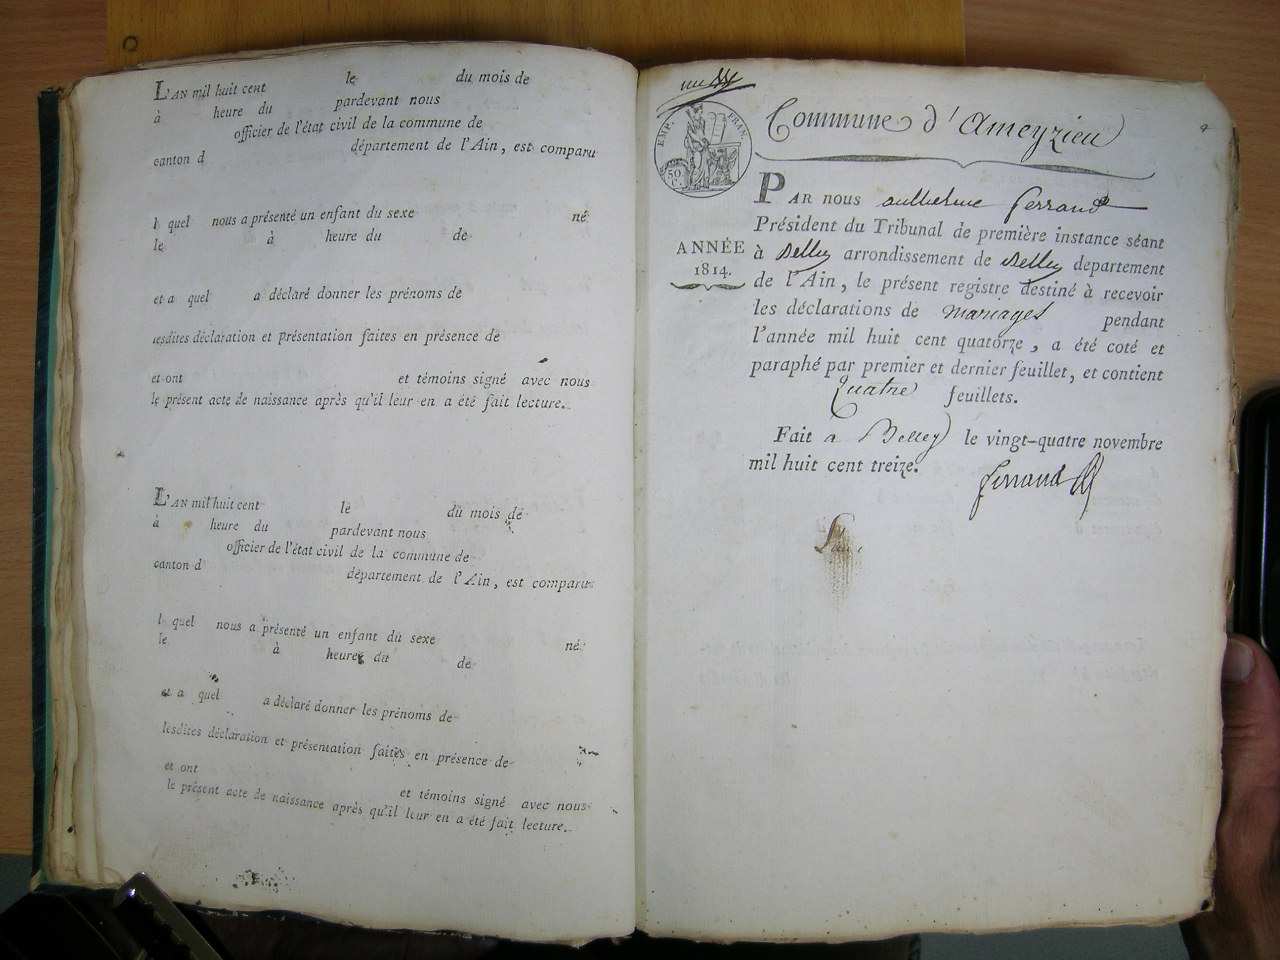 L'AN mil huit cent le du mois de
à heure du pardevant nous
officier de l'état civil de la commune de
canton d département de l'Ain, est comparu
l quel nous a présenté un enfant du sexe né
le à heure du de
et a quel a déclaré donner les prénoms de
lesdites déclaration et présentation faites en présence de
et ont et témoins signé avec nous
le présent acte de naissance après qu'il leur en a été fait lecture.
L'AN mil huit cent le du mois de
à heure du pardevant nous
officier de l'état civil de la commune de
canton d département de l'Ain, est comparu
l quel nous a présenté un enfant du sexe né
le à heure du de
et a quel a déclaré donner les prénoms de
lesdites déclaration et présentation faites en présence de
et ont et témoins signé avec nous
le présent acte de naissance après qu'il leur en a été fait lecture.
EMP. FRAN.
50 C.
Commune d'Ameyzieu
ANNÉE
1814.
PAR nous anthelme ferrand
Président du Tribunal de première instance séant
à Belley arrondissement de Belley departement
de l'Ain, le présent registre destiné à recevoir
les déclarations de mariages pendant
l'année mil huit cent quatorze, a été coté et
paraphé par premier et dernier feuillet, et contient
quatre feuillets.
Fait a Belley le vingt-quatre novembre
mil huit cent treize.
ferrand